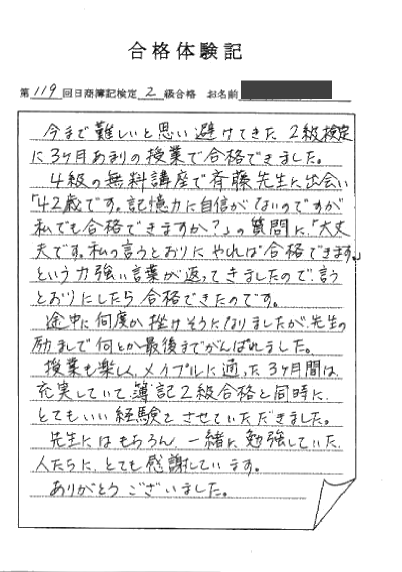 合格体験記
第119回日商簿記検定2級合格 お名前
今まで難しいと思い避けてきた2級検定
に3ヶ月あまりの授業で合格できました。
4級の無料講座で斉藤先生に出会い
「42歳です。記憶力に自信がないのですが
私でも合格できますか?」の質問に、「大丈
夫です。私の言うとおりにやれば合格できます。」
という力強い言葉が返ってきましたので、言う
とおりにしたら合格できたのです。
途中に何度か挫けそうになりましたが、先生の
励ましで何とか最後までがんばれました。
授業も楽しく、メイプルに通った3ヶ月間は、
充実していて、簿記2級合格と同時に、
とてもいい経験をさせていただきました。
先生にはもちろん、一緒に勉強していた、
人たちに、とても感謝しています。
ありがとうございました。